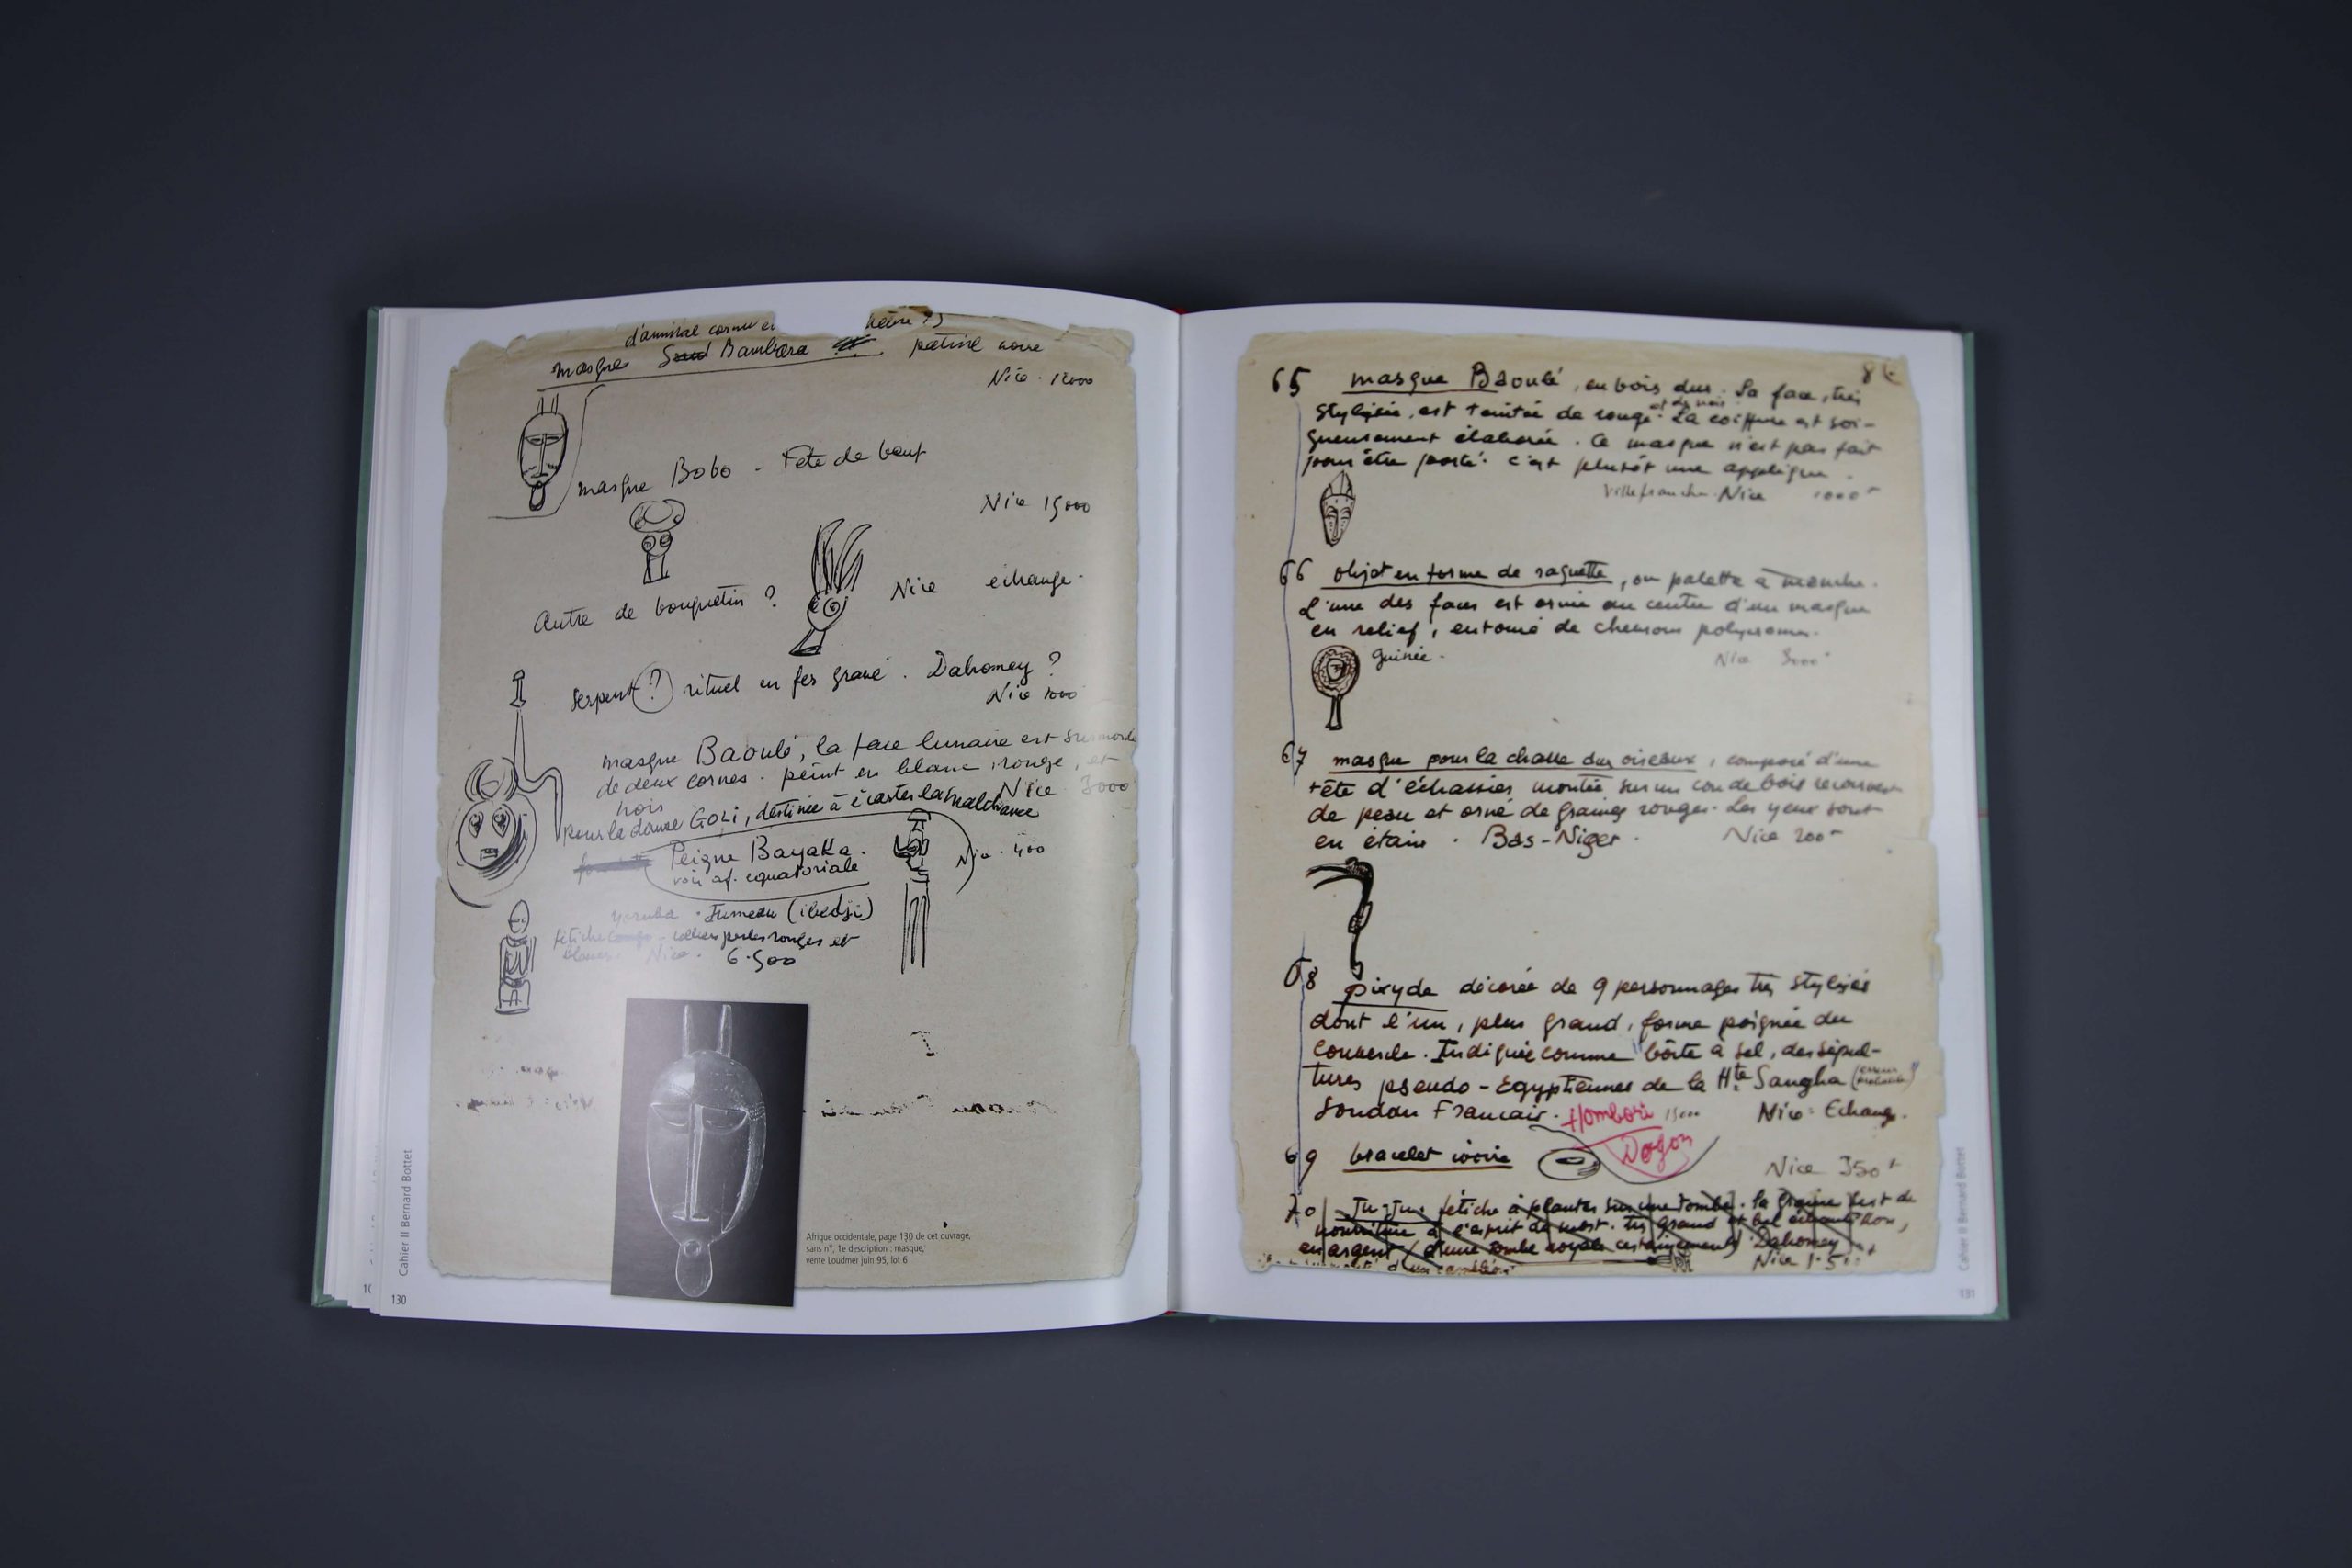 d'animal cornu
masque Bambara patine noire
Nice - 12000
masque Bobo - Tête de bœuf
Nice 15000
Autre de bouquetin ? Nice échange -
Serpent (?) rituel en fer gravé . Dahomey ?
Nice 1000
masque Baoulé, la face lunaire est surmontée
de deux cornes . peint en blanc rouge, et
noir Nice 3000
pour la danse GOLI, destinée à écarter la malchance
Peigne Bayaka . Nice . 400
voir af. equatoriale
yoruba . Jumeau (ibedji)
fétiche collier perles rouges et
blanches Nice . 6.500
Afrique occidentale, page 130 de cet ouvrage,
sans n°, 1e description : masque,
vente Loudmer juin 95, lot 6
Cahier II Bernard Bottet
130
10
65 masque Baoulé, en bois dur. Sa face, très
stylisée, est teintée de rouge et de noir. La coiffure est soi-
gneusement élaborée . Ce masque n'est pas fait
pour être porté. c'est plutôt une applique .
Villefranche - Nice 1000
66 objet en forme de raquette, ou palette à manche.
L'une des faces est ornée au centre d'un masque
en relief, entouré de chevrons polychromes.
Guinée . Nice 3000
67 masque pour la chasse aux oiseaux, composé d'une
tête d'échassier montée sur un cou de bois recouvert
de peau et orné de graines rouges. Les yeux sont
en étain . Bas-Niger . Nice 200
68 pixyde décorée de 9 personnages très stylisés
dont l'un, plus grand, forme poignée du
couvercle . Indiquée comme "boîte à sel, des sépul-
tures pseudo-Egyptiennes de la Hte Sangha (erreur probable)"
Soudan Francais . Hombori Nice : Echange .
Dogon
69 bracelet ivoire Nice 350
70 Ju-Ju . fétiche à planter sur une tombe . Sa graine sert de
nourriture à l'esprit du mort. très grand et bel échantillon,
en argent (d'une tombe royale certainement) Dahomey
Nice 1.500
Cahier II Bernard Bottet
131